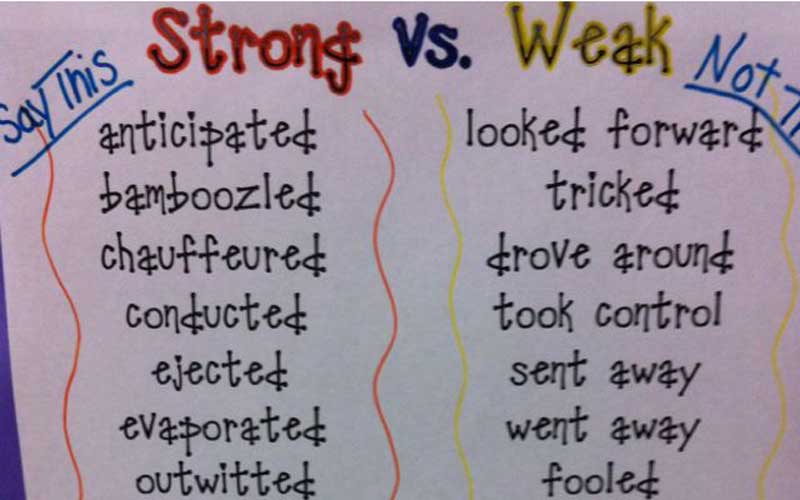 Strong vs. Weak
Say This
Not
anticipated looked forward
bamboozled tricked
chauffeured drove around
conducted took control
ejected sent away
evaporated went away
outwitted fooled